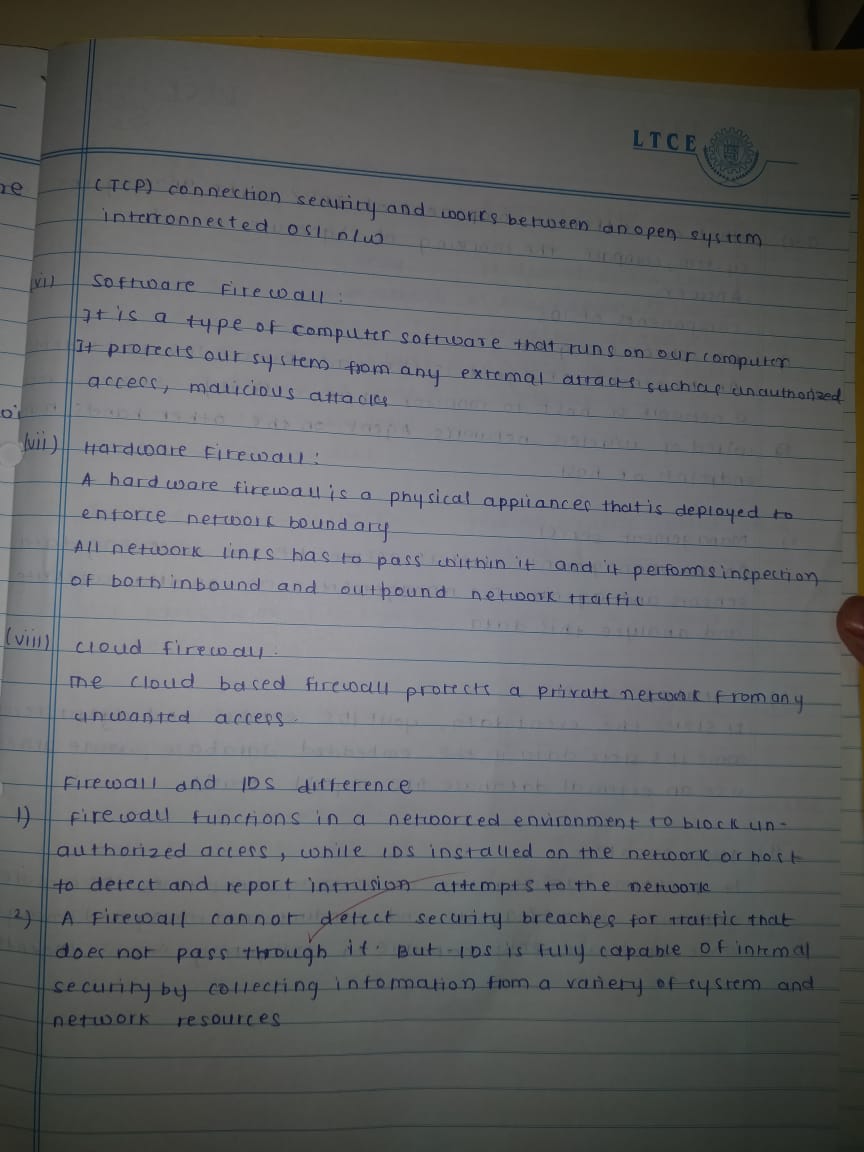 LTCE
re
(TCP) connection security and works between an open system
interconnected OSI n/w
(vi) Software Firewall:
It is a type of computer software that runs on our computer
It protects our system from any external attacks such as unauthorized
access, malicious attacks
(vii) Hardware Firewall:
A hardware firewall is a physical appliances that is deployed to
enforce network boundary
All network links has to pass within it and it performs inspection
of both inbound and outbound network traffic
(viii) Cloud firewall.
The cloud based firewall protects a private network from any
unwanted access.
Firewall and IDS difference
1) Firewall functions in a networked environment to block un-
authorized access, while IDS installed on the network or host
to detect and report intrusion attempts to the network
2) A Firewall cannot detect security breaches for traffic that
does not pass through it. But IDS is fully capable of internal
security by collecting information from a variety of system and
network resources